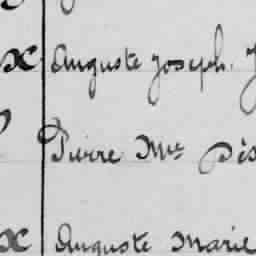 x Auguste Joseph. J
Pierre Mie Dés
x Auguste Marie